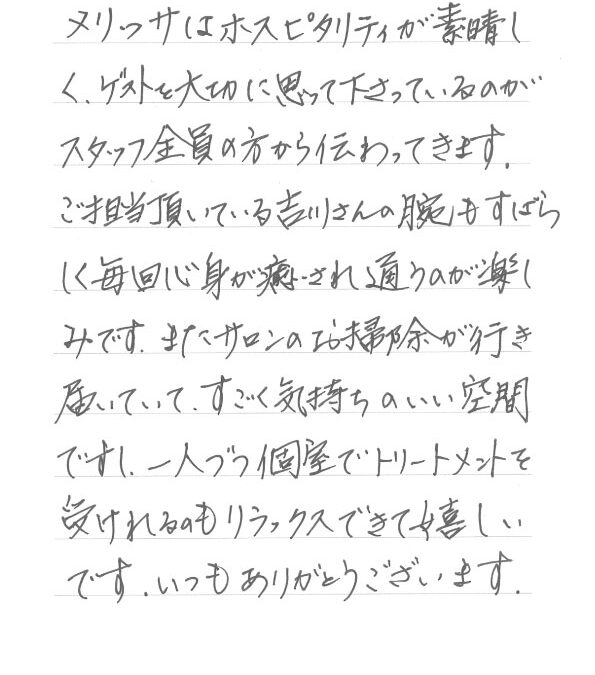 メリッサはホスピタリティが素晴し
く、ゲストを大切に思って下さっているのが
スタッフ全員の方から伝わってきます。
ご担当頂いている吉川さんの腕もすばら
しく毎回心身が癒され通うのが楽し
みです。またサロンのお掃除が行き
届いていて、すごく気持ちのいい空間
ですし、一人づつ個室でトリートメントを
受けれるのもリラックスできて嬉しい
です。いつもありがとうございます。